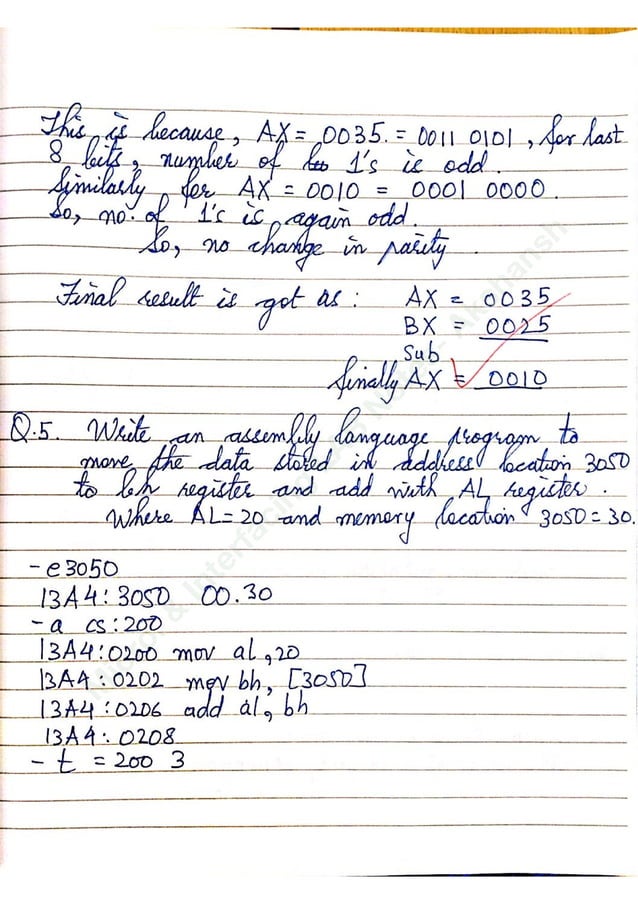 This is because, AX = 0035. = 0011 0101, for last
8 bits, number of 1's is odd.
Similarly for AX = 0010 = 0001 0000.
So, no. of 1's is again odd.
So, no change in parity.
Final result is got as: AX = 0035
BX = 0025
Sub
finally AX = 0010
Q.5. Write an assembly language program to
move the data stored in address location 3050
to bh register and add with AL register.
Where AL=20 and memory location 3050=30.
-e3050
13A4:3050 00.30
-a cs:200
13A4:0200 mov al,20
13A4:0202 mov bh, [3050]
13A4:0206 add al, bh
13A4:0208
- t = 200 3